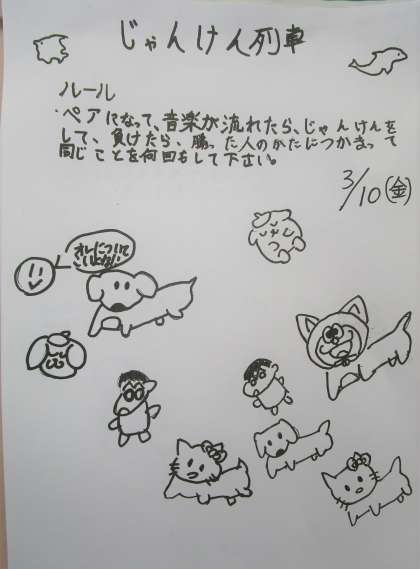 じゃんけん列車
ルール
・ペアになって、音楽が流れたら、じゃんけんを
して、負けたら、勝った人のかたにつかまって
同じことを何回もして下さい。
3/10(金)
オレについて
こいよない